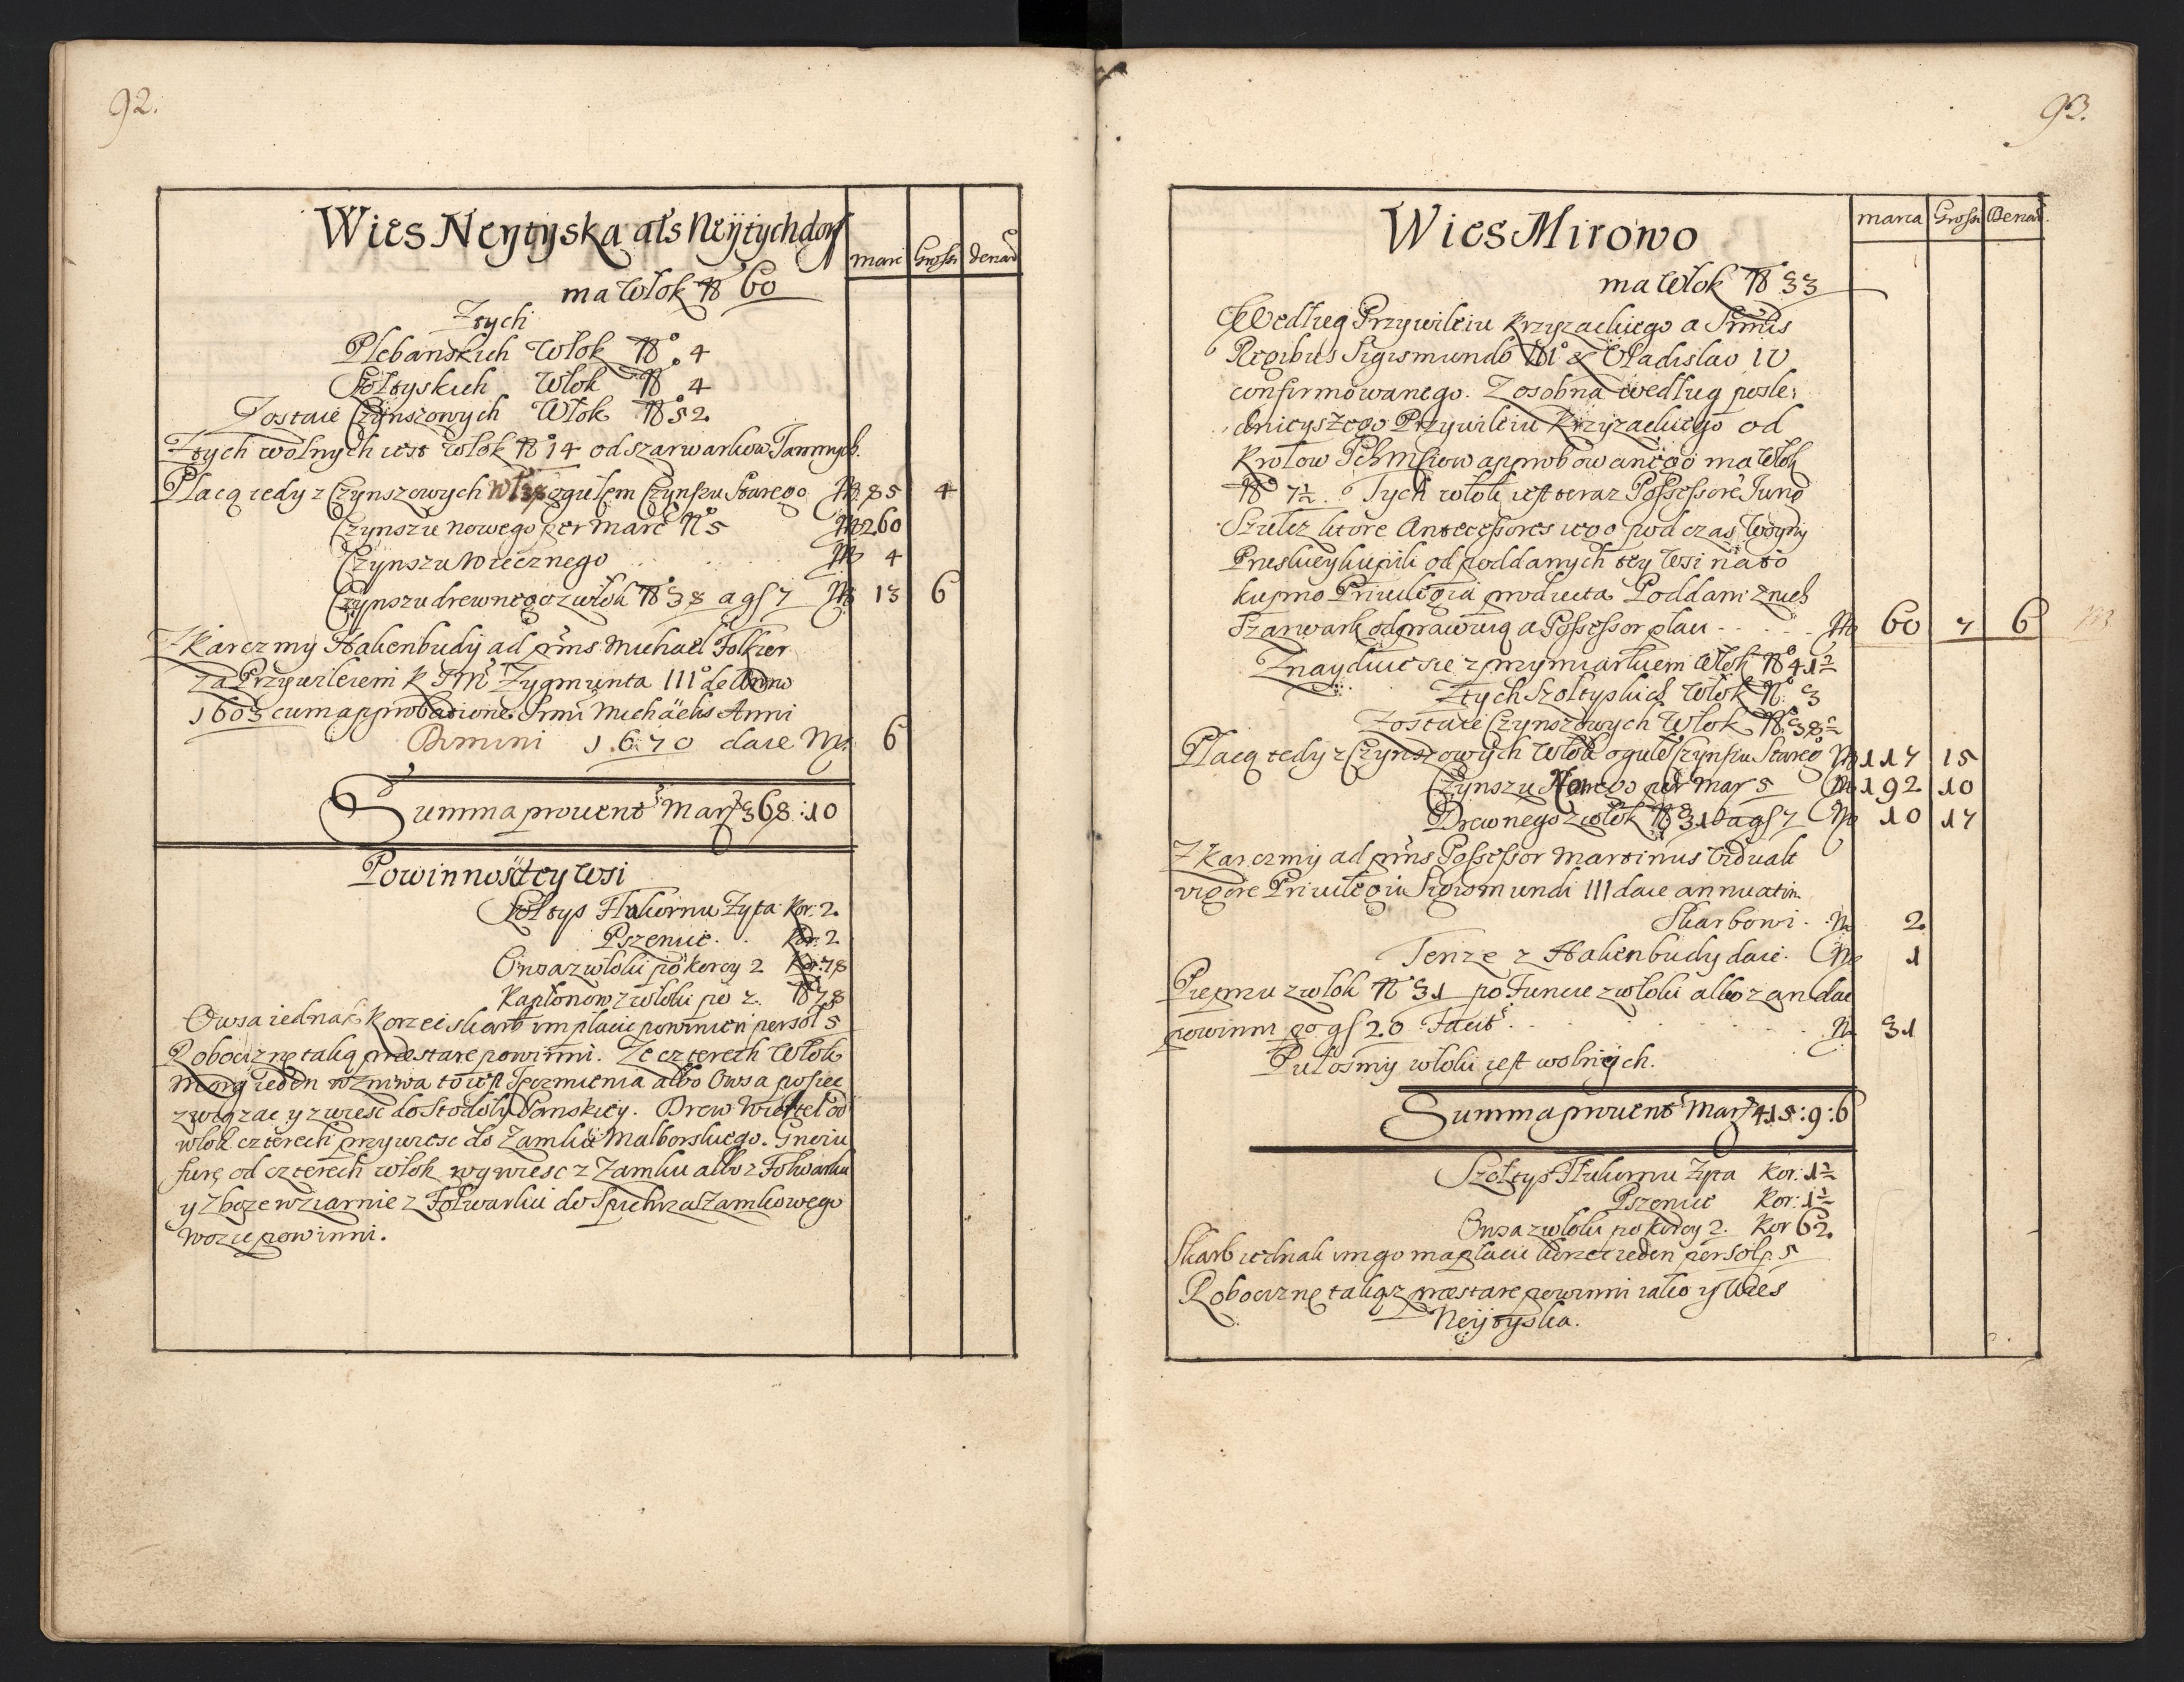 92.
Wies Neytyska als Neÿtychdorf
marc Grossi denar
ma Włok No 60
Z tych
Plebanskich Włok No 4
Sołtyskich Włok No 4
Zostaie Czynszowych Włok No 52
Z tych wolnych iest włok No 14 od szarwarkow Tamnych.
Płacą tedy z Czynszowych Włok ogułem Czynszu Starego M 85 4
Czynszu nowego per Marc No 5 M 260
Czynszu Wiecznego M 4
Czynszu drewnego z włok No 38 a gſ 7 M 13 6
Z Karczmy Hakenbudy ad pñs Michael Folkier
za Przywileiem K J M Zygmunta III de Anno
1603 cum approbatione Srmi Michaelis Anni
Domini 1670 daie M 6
Summa prouent Mar 368:10
Powinnosc tey Wsi
Sołtys Tłukornu Zyta Kor: 2.
Pszenice. Kor: 2
Owsa z włoki po korcy 2 Kor: 78
Kapłonow z włoki po 2. No 78
Owsa iednak Korzec skarb im płacic powinien per sol 5
Roboczizne taką præstare powinni. Ze czterech Włok
Morg ieden w zniwa to iest Jęczmienia albo Owsa posiec
związac y zwiesc do Stodoły Panskiey. Drew Wiertel od
włok czterech przywiesc do Zamku Malborskiego. Gnoiu
furę od czterech włok wywiesc z Zamku albo z Folwarku
y Zboze w ziarnie z Folwarku do Spichrza Zamkowego
wozic powinni.
93.
Wies Mirowo
marca Grossi Denar.
ma Włok No 33
Według Przywileiu Krzyzackiego a Srmis
Regibus Sigismundo III & Vladislao IV
confirmowanego. Z osobna według posle-
dnieyszego Przywileiu Krzyzackiego od
Krolow Ichmsciow approbowanego ma Włok
No 7½. Tych włok iest teraz Possessore Jung
Szultz ktore Antecessores iego pod czas Woyny
Pruskiey kupili od poddanych tey Wsi na to
kupno Priuilegia producta Poddani z nich
Szarwark odprawuią a Possessor płaci M 60 7 6
Znayduie sie z przymiarkiem Włok No 41½
Z tych Szołtyskich Włok No 3
Zostaie Czynszowych Włok No 38½
Płacą tedy z Czynszowych Włok ogułe Czynszu Stareo M 117 15
Czynszu Noweo per Mar 5 M 192 10
Drewnego z włok No 31 a gſ 7 M 10 17
Z Karczmy ad pñs Possessor Martinus
vigore Priuilegii Sigismundi III daie annuatim
Skarbowi M 2
Tenze z Hakenbudy daie. M 1
Pieprzu z włok No 31 po Funcie z włoki albo zan dac
powinni po gſ 20 Facit M 31
Pułosmy włoki iest wolnych.
Summa prouent Mar 415:9:6
Szołtys Tłukornu Zyta Kor: 1½
Pszenice Kor: 1½
Owsa z włoki po korcy 2. Kor 62.
Skarb iednak im go ma płacic korzec ieden per sol 5
Roboczizne takąz præstare powinni iako y Wies
Neÿtyska.